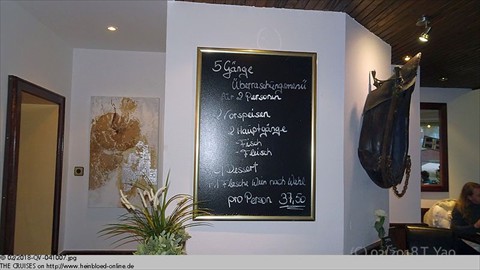 5 Gänge
Überraschungsmenü
für 2 Personen
2 Vorspeisen
2 Hauptgänge
- Fisch
- Fleisch
1 Dessert
1 Flasche Wein nach Wahl
pro Person 37,50
(C) 02/2018 T. Yao
© 02/2018-QV-041007.jpg
THE CRUISES on http://www.heinbloed-online.de